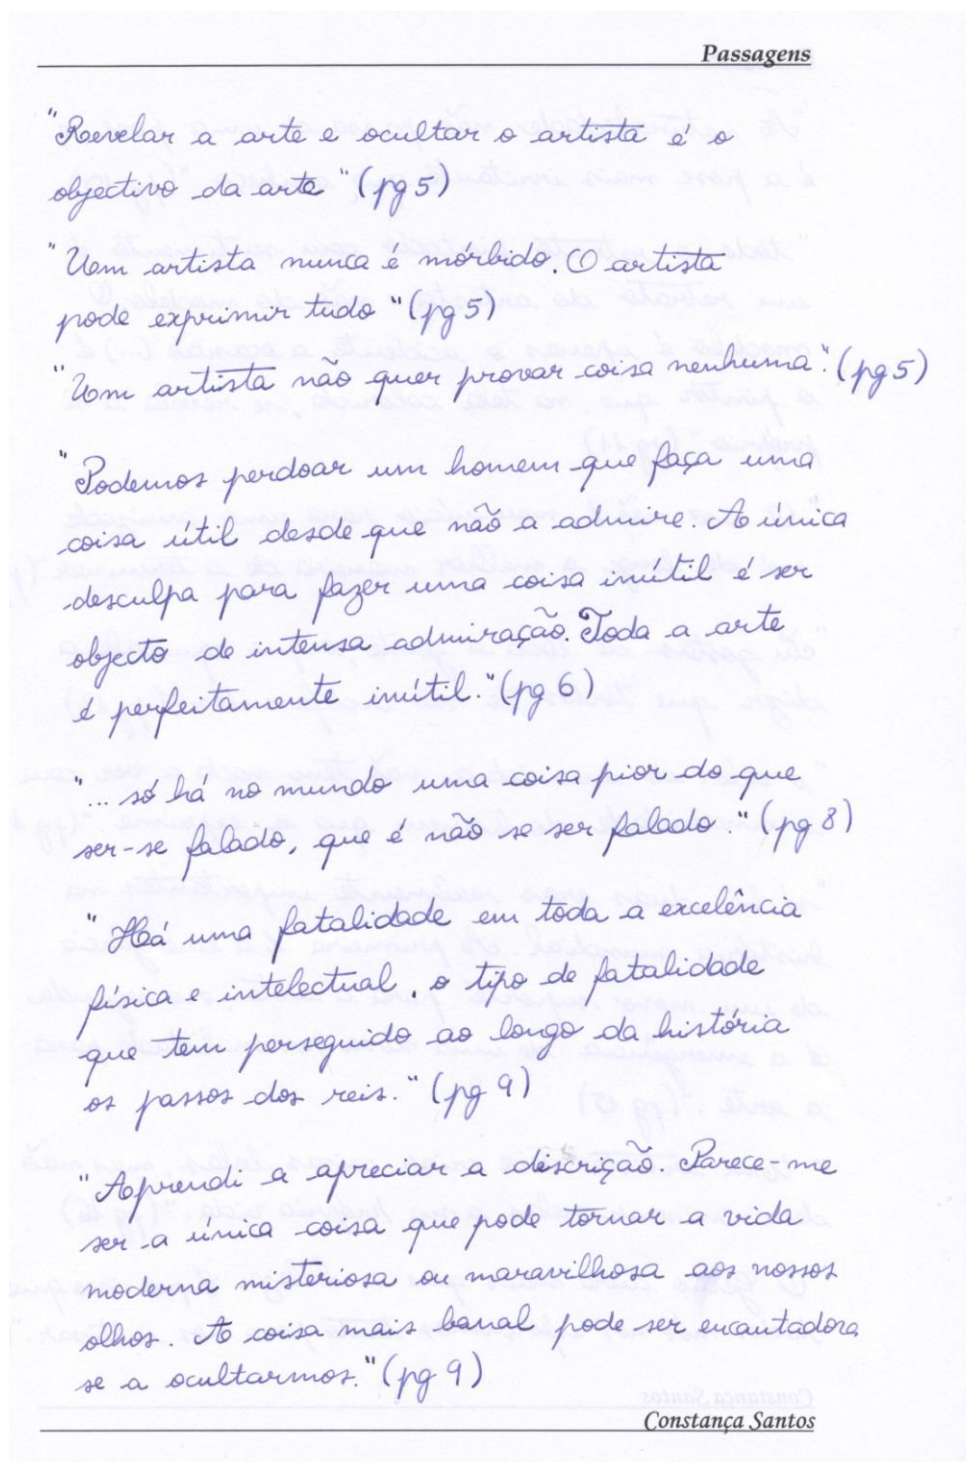 Passagens
"Revelar a arte e ocultar o artista é o
objectivo da arte" (pg 5)
"Um artista nunca é mórbido. O artista
pode exprimir tudo" (pg 5)
"Um artista não quer provar coisa nenhuma." (pg 5)
"Podemos perdoar um homem que faça uma
coisa útil desde que não a admire. A única
desculpa para fazer uma coisa inútil é ser
objecto de intensa admiração. Toda a arte
é perfeitamente inútil." (pg 6)
"... só há no mundo uma coisa pior do que
ser-se falado, que é não se ser falado." (pg 8)
"Há uma fatalidade em toda a excelência
física e intelectual, o tipo de fatalidade
que tem perseguido ao longo da história
os passos dos reis." (pg 9)
"Aprendi a apreciar a discrição. Parece-me
ser a única coisa que pode tornar a vida
moderna misteriosa ou maravilhosa aos nossos
olhos. A coisa mais banal pode ser encantadora
se a ocultarmos." (pg 9)
Constança Santos